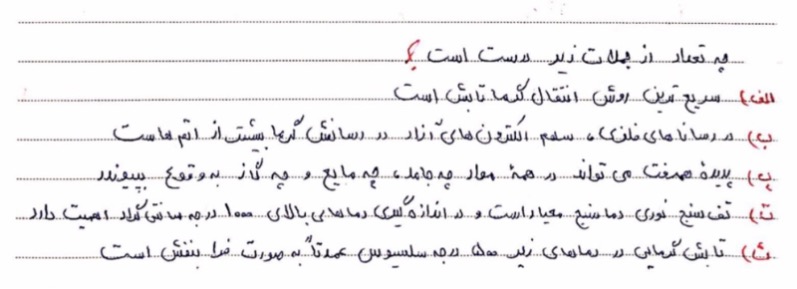 چه تعداد از جملات زیر درست است ؟
الف) سریع ترین روش انتقال گرما تابش است
ب) در رساناهای فلزی، سهم الکترون های آزاد در رسانش گرما بیشتر از اتم هاست
پ) پدیدهٔ همرفت می تواند در همهٔ مواد چه جامد، چه مایع و چه گاز به وقوع بپیوندد
ت) تف سنج نوری دماسنج معیار است و در اندازه گیری دماهای بالای ۱۰۰۰ درجه سانتی گراد اهمیت دارد
ث) تابش گرمایی در دماهای زیر ۵۰۰ درجه سلسیوس عمدتاً به صورت فرابنفش است